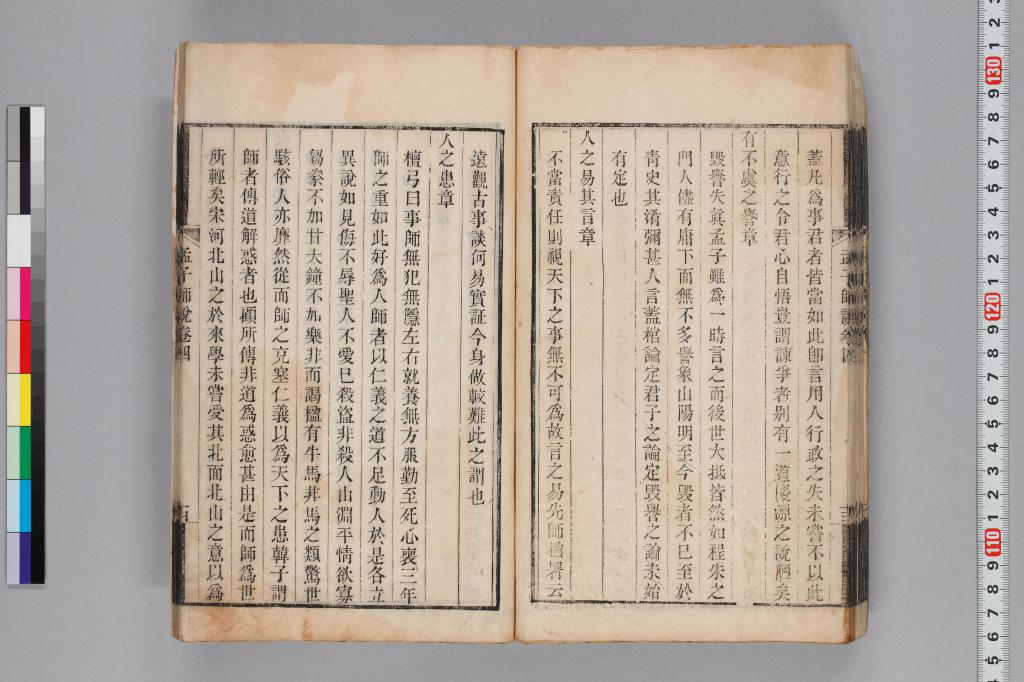 蓋凡爲事君者皆當如此卽言用人行政之失未嘗不以此
意行之令君心自悟豈謂諫爭者別有一道慶源之說陋矣
有不虞之譽章
毀譽失眞孟子雖爲一時言之而後世大抵皆然如程朱之
門人儘有庸下而無不多譽象山陽明至今毀者不已至於
靑史其淆彌甚人言蓋棺論定君子之論定毀譽之論未始
有定也
人之易其言章
不當責任則視天下之事無不可爲故言之易先師檻署云
遠觀古事談何易實証今身做較難此之謂也
人之患章
檀弓曰事師無犯無隱左右就養無方服勤至死心喪三年
師之重如此好爲人師者以仁義之道不足動人於是各立
異說如見侮不辱聖人不愛已殺盜非殺人山淵平情欲寡
芻豢不加甘大鐘不加樂非而謁楹有牛馬非馬之類驚世
駭俗人亦靡然從而師之充塞仁義以爲天下之患韓子謂
師者傳道解惑者也顧所傳非道爲惑愈甚由是而師爲世
所輕矣宋河北山之於來學未嘗受其北面北山之意以爲
孟子師說卷四